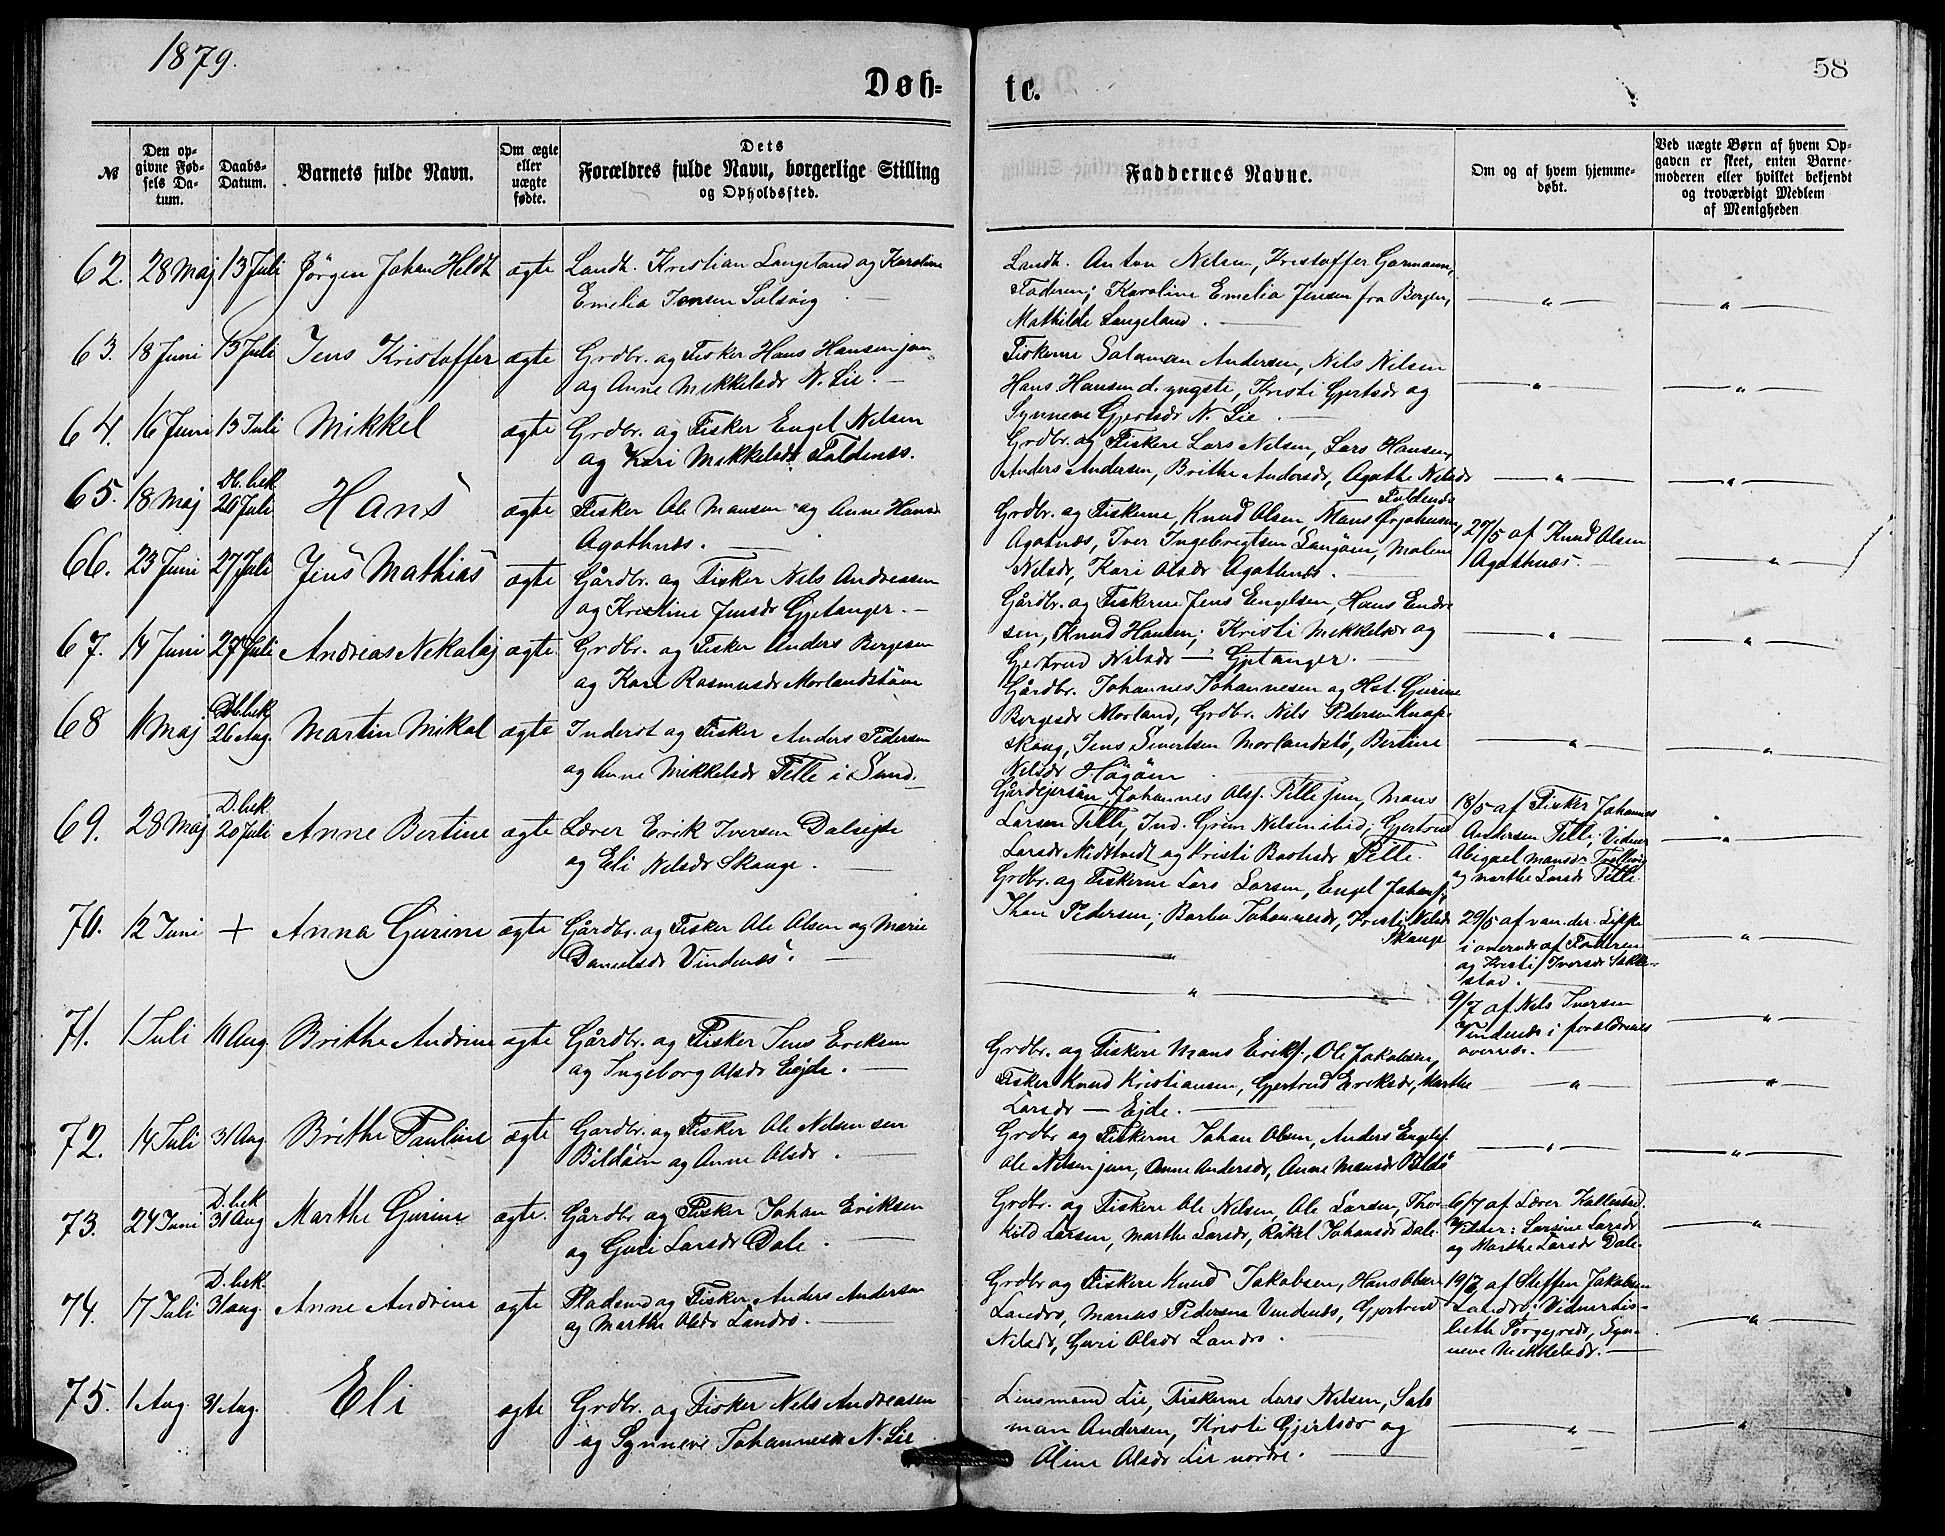 1879.
58
Døb-
te.
№
Den op-
givne Fød-
sels Da-
tum.
Daabs-
Datum.
Barnets fulde Navn.
Om ægte
eller
uægte
fødte.
Dets
Forældres fulde Navn, borgerlige Stilling
og Opholdssted.
Faddernes Navne.
Om og af hvem hjemme-
døbt.
Ved uægte Børn af hvem Op-
gaven er skeet, enten Barne-
moderen eller hvilket bekjendt
og troværdigt Medlem
af Menigheden
62. 28 Maj 13 Juli Jørgen Johan Heldt ægte Landh. Kristian Langeland og Karoline
Emelia Jensen Solsvig
Landh. Anton Nilsen, Kristoffer Garmann,
Faderen; Karoline Emelia Jensen fra Bergen,
Mathilde Langeland.
63. 18 Juni 13 Juli Jens Kristoffer ægte Grdbr. og Fisker Hans Hansen jun
og Anne Mikkelsdr N. Lie.
Fiskerne Salaman Andersen, Nils Nilsen
Hans Hansen d. yngste, Kristi Gjertsdr og
Synneve Gjertsdr N. Lie.
64. 16 Juni 13 Juli Mikkel ægte Grdbr. og Fisker Engel Nilsen
og Kari Mikkelsdr Toldnæs.
Grdbr. og Fiskere Lars Nilsen, Lars Hansen,
Anders Andersen, Brithe Andersdr, Agathe Nilsdr
65. 18 Maj Db. bek 20 Juli Hans ægte Fisker Ole Mansen og Anne Hansdr
Agathnæs.
Grdbr. og Fiskerne Knud Olsen, Mans Ørjahnsen,
Agatnæs, Iver Ingebrigtsen Langøen, Malene
Nilsdr, Kari Olsdr Agatnæs.
27/5 af Knud Olsen
Agathnæs.
66. 23 Juni 27 Juli Jens Mathias ægte Gårdbr. og Fisker Nils Andreassen
og Kristine Jensdr Gjetanger.
Gårdbr. og Fiskerne Jens Engelsen, Hans Endre
sen, Knud Hansen; Kristi Mikkelsdr og
Gjertrud Nilsdr — Gjetanger.
67. 14 Juni 27 Juli Andreas Nekolaj ægte. Grdbr. og Fisker Anders Børgesen
og Kari Rasmusdr Morlandstøen
Gårdbr. Johannes Johannesen og Hst. Gurine
Børgesdr Morland, Grdbr. Nils Pedersen Knap-
skaug, Jens Sivertsen Morlandstø, Bertine
Nilsdr Høgøen
68 11 Maj Db. bek 26 Aug. Martin Mikal ægte Inderst og Fisker Anders Pedersen
og Anne Mikkelsdr Telle i Sund.
Gårdejersøn Johannes Olsf. Telle jun, Mans
Larsen Telle, Ind. Grim Nilsen ibid, Gjertrud
Larsdr Midttvedt og Kristi Baarsdr Telle.
18/5 af Fisker Johannes
Andersen Telle; Vidner
Abigael Mansdr
og Marthe Larsdr Telle.
69. 28 Maj D. bek 20 Juli Anne Bertine ægte Lærer Erik Iversen Dalsejde
og Eli Nilsdr Skauge.
Grdbr. og Fiskerne Lars Larsen, Engel Johansf.
Thon Pedersen; Barbro Johannesdr, Kristi Nilsdr
Skauge
29/5 af van der Lippe
i overvær af Faderen
og Kristi Iversdr
70. 12 Juni + Anna Gurine ægte Gårdbr. og Fisker Ole Olsen og Marie
Danielsdr Vindenæs.
9/7 af Nils Iversen
Vindenæs i forældrenes
overvær.
71. 1 Juli 10 Aug. Brithe Andrine ægte Gårdbr. og Fisker Jens Eriksen
og Ingeborg Olsdr Eide.
Grdbr. og Fiskere Mans Eriksf., Ole Jakobsen,
Fisker Knud Kristiansen, Gjertrud Eriksdr, Marthe
Larsdr — Ejde.
72. 14 Juli 31 Aug Brithe Pauline ægte Gardbr. og Fisker Ole Nilsen sen
Bildøen og Anne Olsdr.
Grdbr og Fiskerne Johan Olsen, Anders Englsf.
Ole Nilsen jun, Anne Andersdr, Anne Mansdr Bildø
73. 24 Juni D. bek 31 Aug Marthe Gurine ægte. Gårdbr og Fisker Johan Eriksen
og Guri Larsdr Dale.
Grdbr. og Fiskere Ole Nilsen, Ole Larsen, Thor-
kild Larsen, Marthe Larsdr, Rakel Johansdr Dale
6/7 af Lærer Kallestad.
Vidner: Larsine Larsdr
og Marthe Larsdr Dale.
74. 17 Juli D. bek 31 Aug. Anne Andrine ægte Pladsmd og Fisker Anders Andersen
og Marthe Olsdr Landro.
Grdbr og Fiskere Knud Jakobsen, Hans Olsen
Landro, Marias Pedersen Vindenæs, Gjertrud
Nilsdr, Guri Olsdr Landro.
19/7 af Steffen Jakobsen
Landro; Vidner Lis-
beth Torgejrsdr, Syn-
neve Mikkelsdr.
75. 1 Aug. 31 Aug. Eli ægte Grdbr. og Fisker Nils Andreassen
og Synneve Johannesdr N. Lie
Linsmand Lie, Fiskerne Lars Nilsen, Salo
man Andersen, Kristi Gjertsdr og
Oline Olsdr Lie nordre.